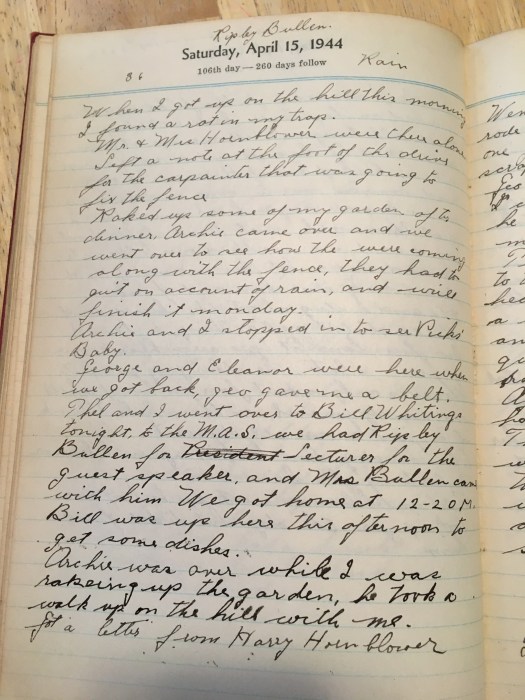 Ripley Bullen.
Saturday, April 15, 1944
106th day — 260 days follow
Rain
36
When I got up on the hill this morning
I found a rat in my trap.
Mr. & Mrs Hornblower were there alone
Left a note at the foot of the drive
for the carpainter that was going to
fix the fence
Raked up some of my garden. aft
dinner Archie came over and we
went over to see how the were coming
along with the fence, they had to
quit on account of rain, and will
finish it monday.
Archie and I stopped in to see Picks'
Baby.
George and Eleanor were here when
we got back, geo gave me a belt.
Thel and I went over to Bill Whitings
tonight, to the M.A.S, we had Ripley
Bullen for President Lecturer for the
guest speaker, and Mrs Bullen cam
with him We got home at 12-20 M.
Bill was up here this afternoon to
get some dishes.
Archie was over while I was
rakeing up the garden, he took a
walk up on the hill with me.
got a letter from Harry Hornblower
Wen
rode
one
scra
Geo
he